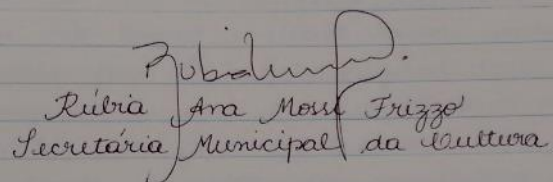 Rúbia Ana Mossi Frizzo
Secretária Municipal da Cultura